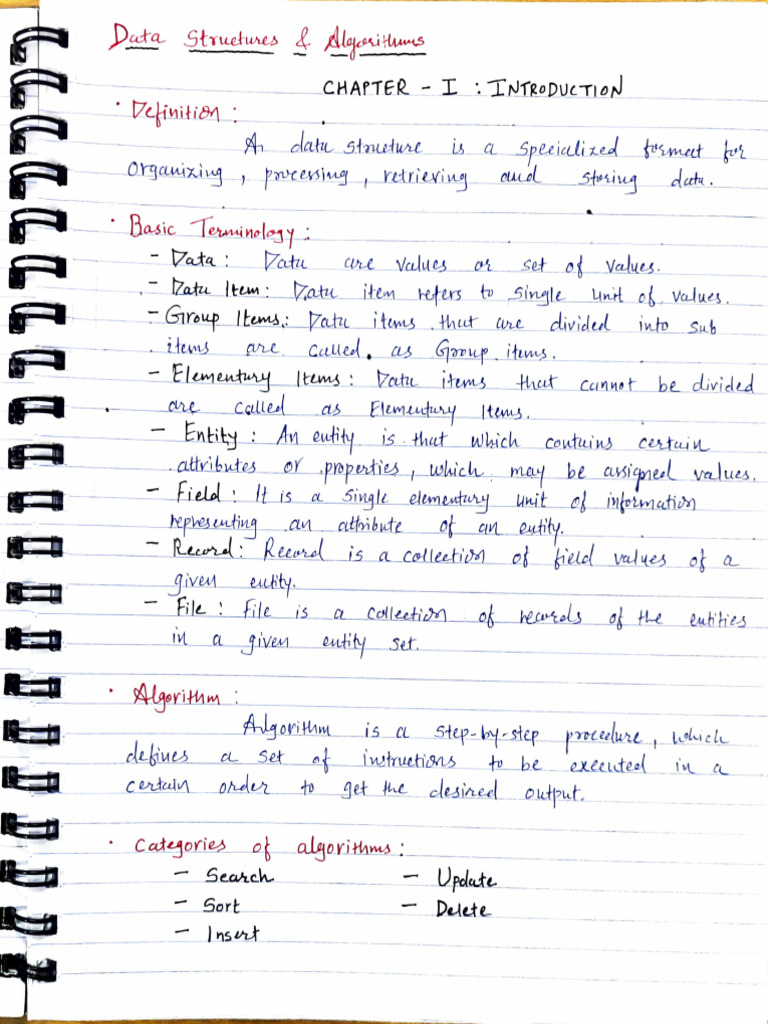 Data Structures & Algorithms
CHAPTER - I : INTRODUCTION
· Definition :
A data structure is a specialized format for
organizing, processing, retrieving and storing data.
· Basic Terminology :
- Data : Data are values or set of values.
- Data Item : Data item refers to single unit of values.
- Group Items : Data items that are divided into sub
items are called as Group items.
- Elementary Items : Data items that cannot be divided
are called as Elementary Items.
- Entity : An entity is that which contains certain
attributes or properties, which may be assigned values.
- Field : It is a single elementary unit of information
representing an attribute of an entity.
- Record : Record is a collection of field values of a
given entity.
- File : File is a collection of records of the entities
in a given entity set.
· Algorithm :
Algorithm is a step-by-step procedure, which
defines a set of instructions to be executed in a
certain order to get the desired output.
· Categories of algorithms :
- Search - Update
- Sort - Delete
- Insert